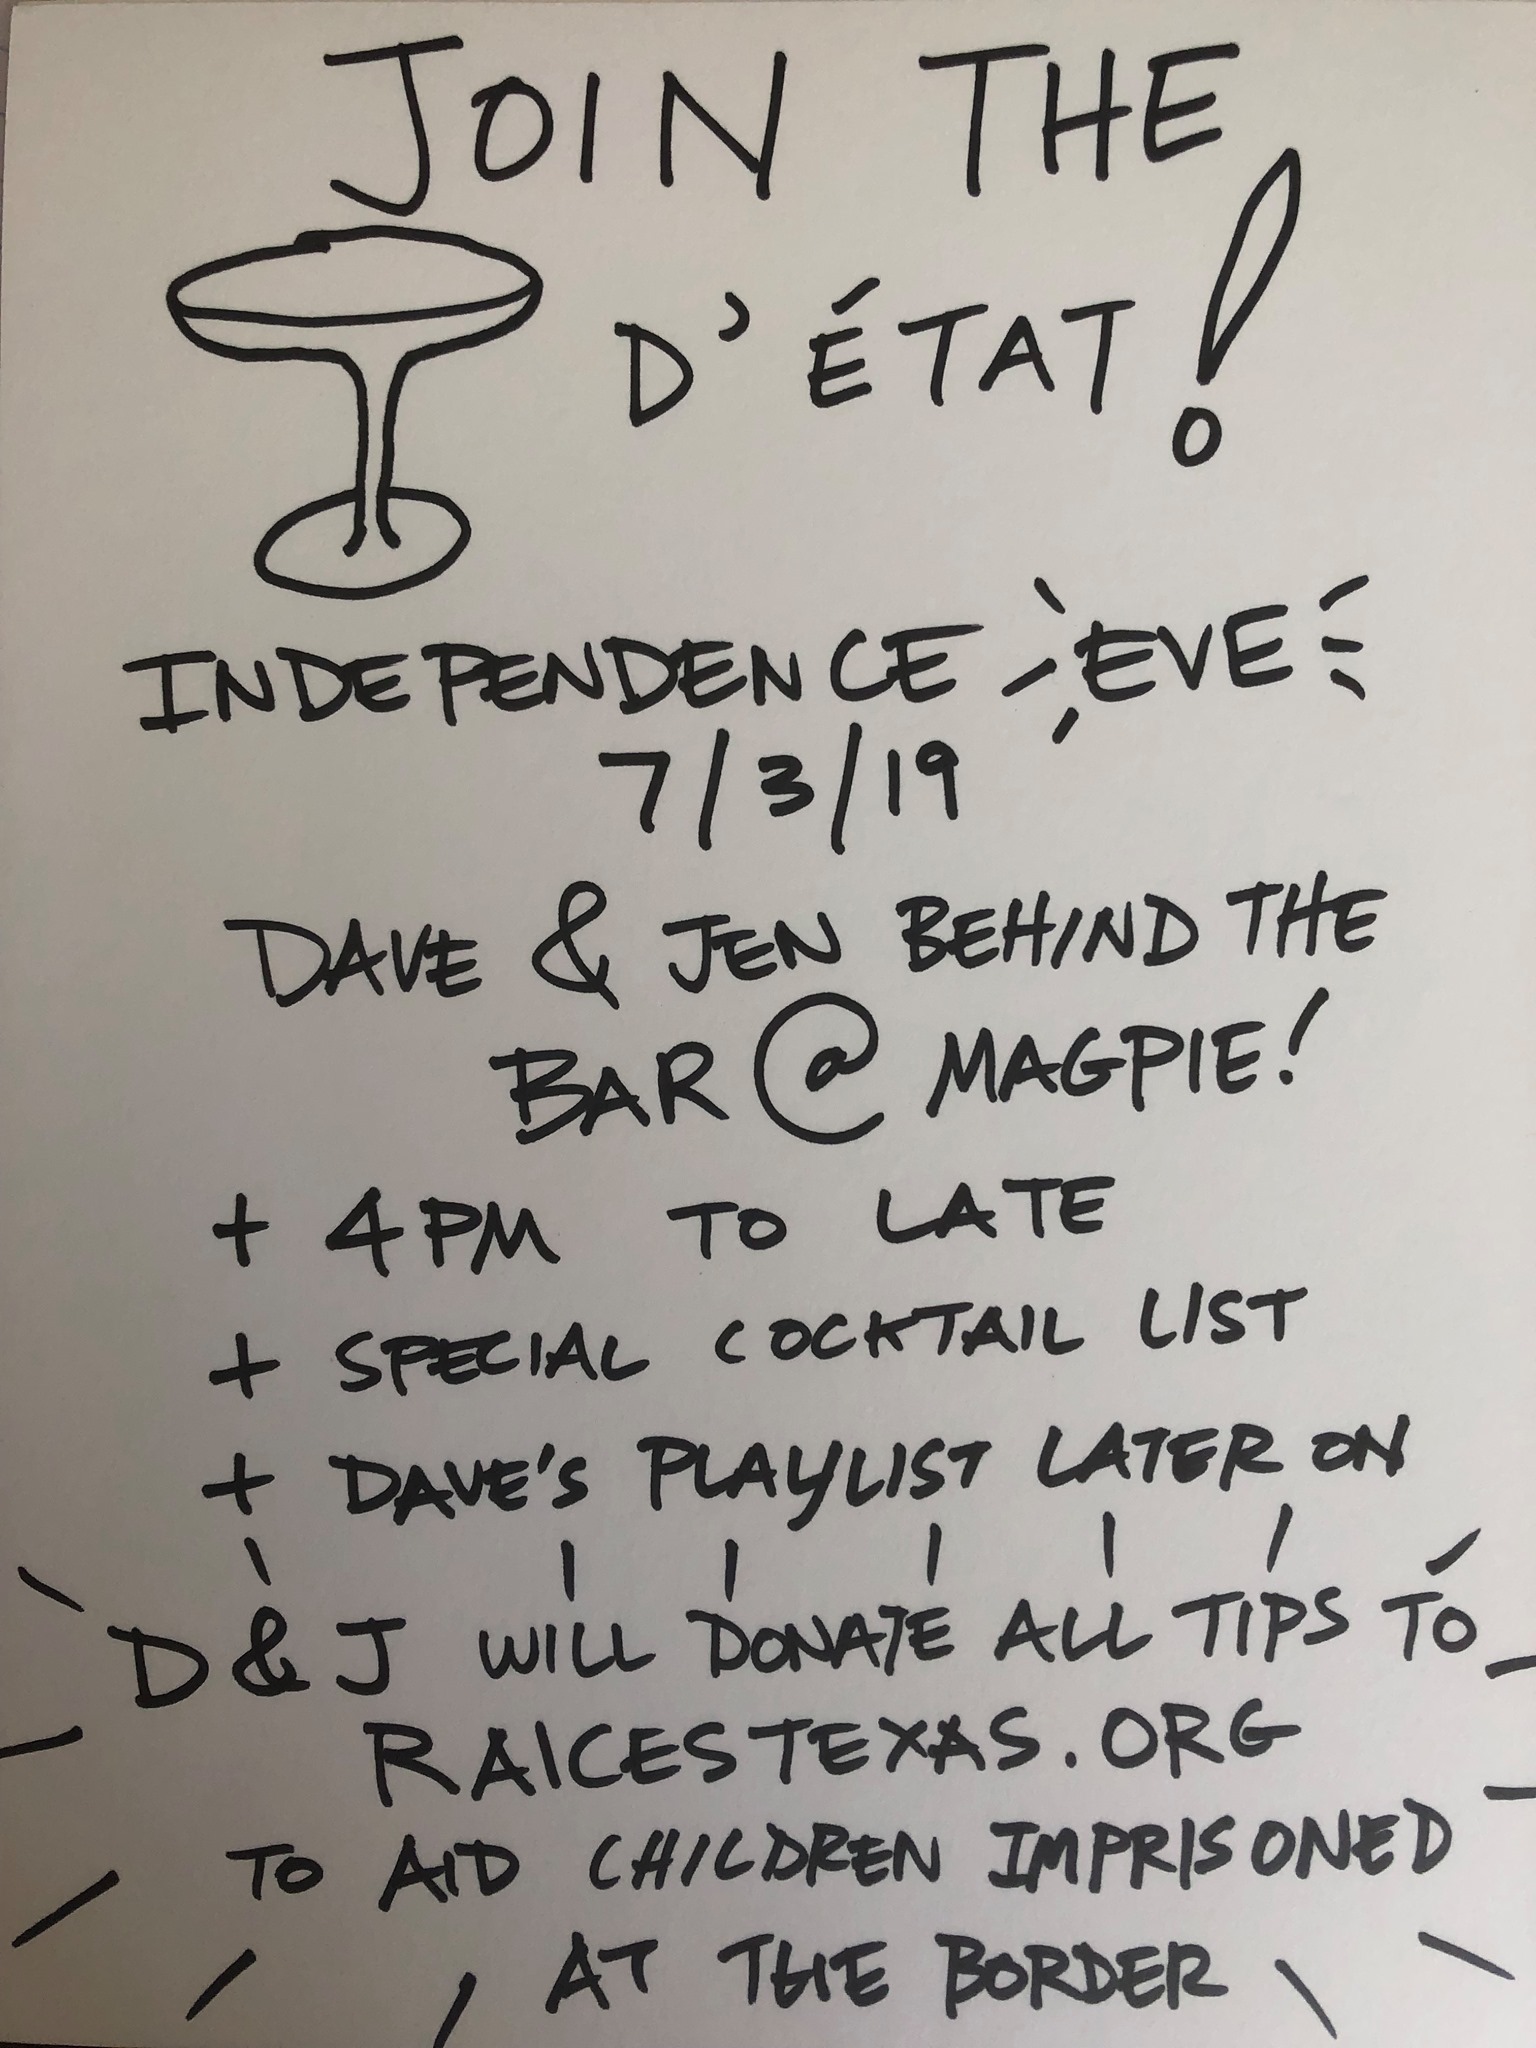 JOIN THE
D'ÉTAT!
INDEPENDENCE EVE
7/3/19
DAVE & JEN BEHIND THE
BAR @ MAGPIE!
+ 4PM TO LATE
+ SPECIAL COCKTAIL LIST
+ DAVE'S PLAYLIST LATER ON
D & J WILL DONATE ALL TIPS TO
RAICESTEXAS.ORG
TO AID CHILDREN IMPRISONED
AT THE BORDER